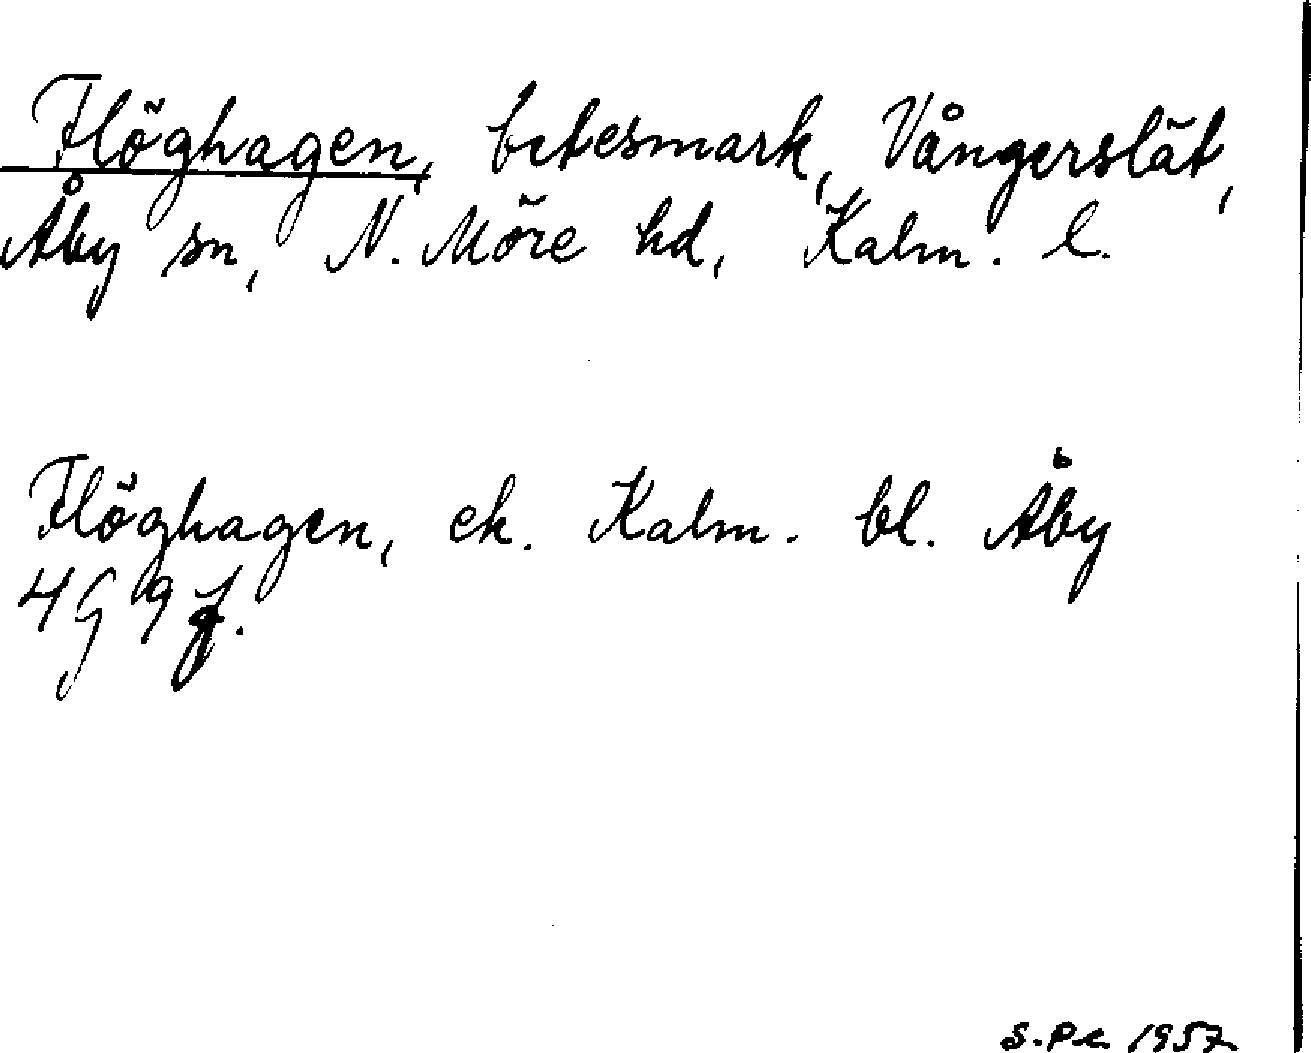 Flöghagen, betesmark, Vångerslät,
Åby sn, N. Möre hd, Kalm. l.
Flöghagen, ek. Kalm. bl. Åby
4G 9f.
S. Pn 1957